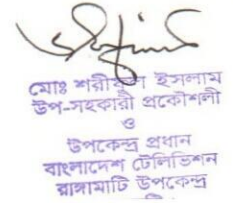 মোঃ শরীফুল ইসলাম
উপ-সহকারী প্রকৌশলী
ও
উপকেন্দ্র প্রধান
বাংলাদেশ টেলিভিশন
রাঙ্গামাটি উপকেন্দ্র